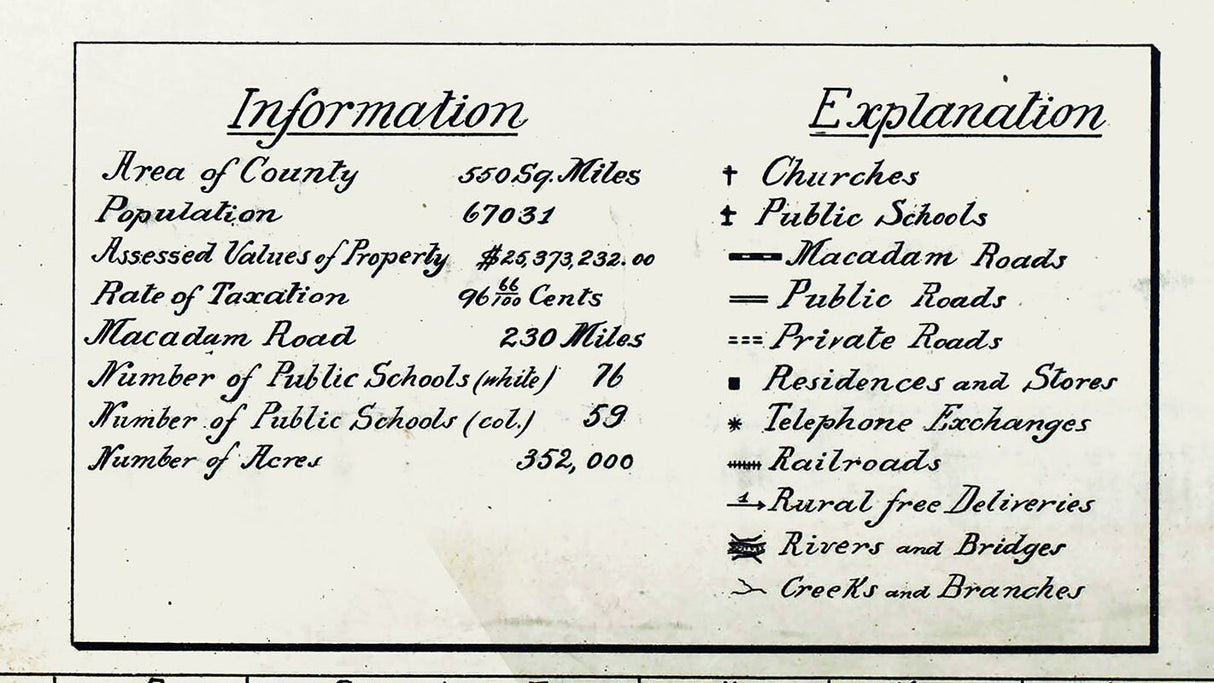 Information
Area of County 550 Sq. Miles
Population 67031
Assessed Values of Property $25,373,232.00
Rate of Taxation 96 66/100 Cents
Macadam Road 230 Miles
Number of Public Schools (white) 76
Number of Public Schools (col.) 59
Number of Acres 352,000
Explanation
Churches
Public Schools
Macadam Roads
Public Roads
Private Roads
Residences and Stores
Telephone Exchanges
Railroads
1 Rural free Deliveries
Rivers and Bridges
Creeks and Branches